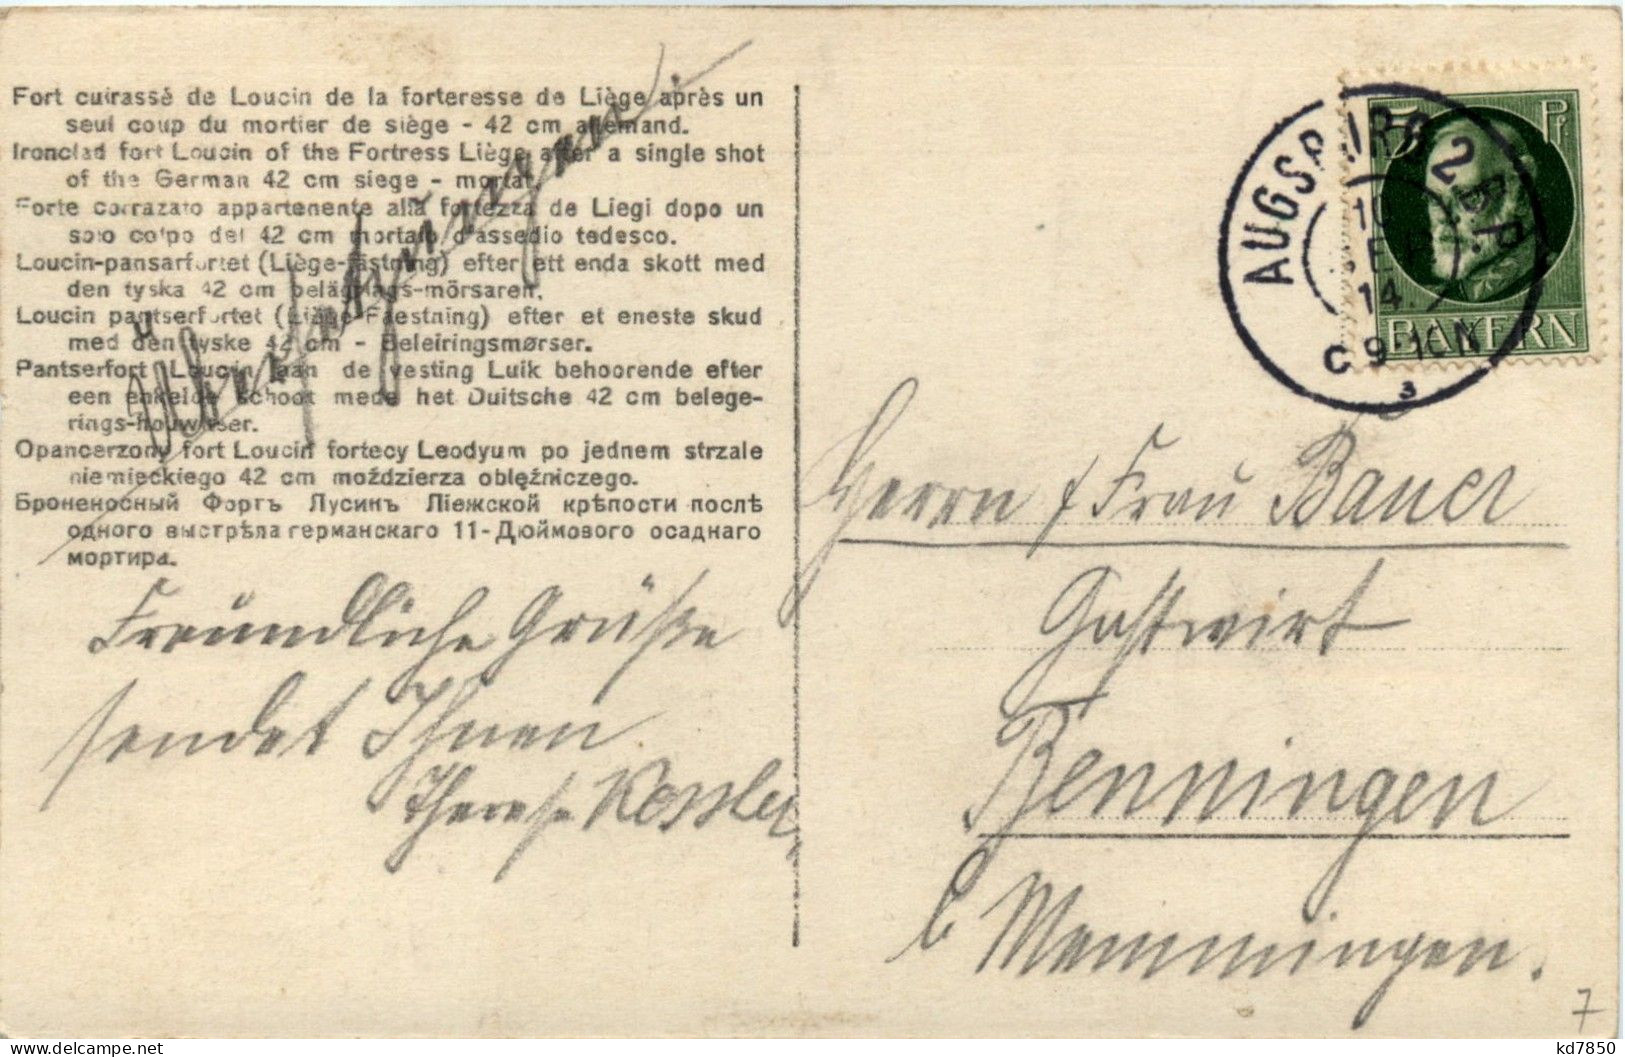 Fort cuirassé de Loucin de la forteresse de Liège après un
seul coup du mortier de siège - 42 cm allemand.
Ironclad fort Loucin of the Fortress Liège after a single shot
of the German 42 cm siege - mortar.
Forte corrazato appartenente alla fortezza de Liegi dopo un
solo colpo del 42 cm mortaio d'assedio tedesco.
Loucin-pansarfortet (Liège-fästning) efter ett enda skott med
den tyska 42 cm belägrings-mörsaren.
Loucin pantserfortet (Liège-Faestning) efter et eneste skud
med den tyske 42 cm - Beleiringsmørser.
Pantserfort Loucin aan de vesting Luik behoorende efter
een enkelde schoot mede het Duitsche 42 cm belege-
rings-houwitser.
Opancerzony fort Loucin fortecy Leodyum po jednem strzale
niemieckiego 42 cm moździerza oblężniczego.
Броненосный Фортъ Лусинъ Ліежской крѣпости послѣ
одного выстрѣла германскаго 11-Дюймового осаднаго
мортира.
Freundliche Grüße
sendet Ihnen
Therese Kessler
5 Pf
BAYERN
AUGSBURG 2 B.P.
10
SEP
14.
C 9-10 N
3
Herrn & Frau Bauer
Gastwirt
Benningen
b Memmingen.
7
kd7850